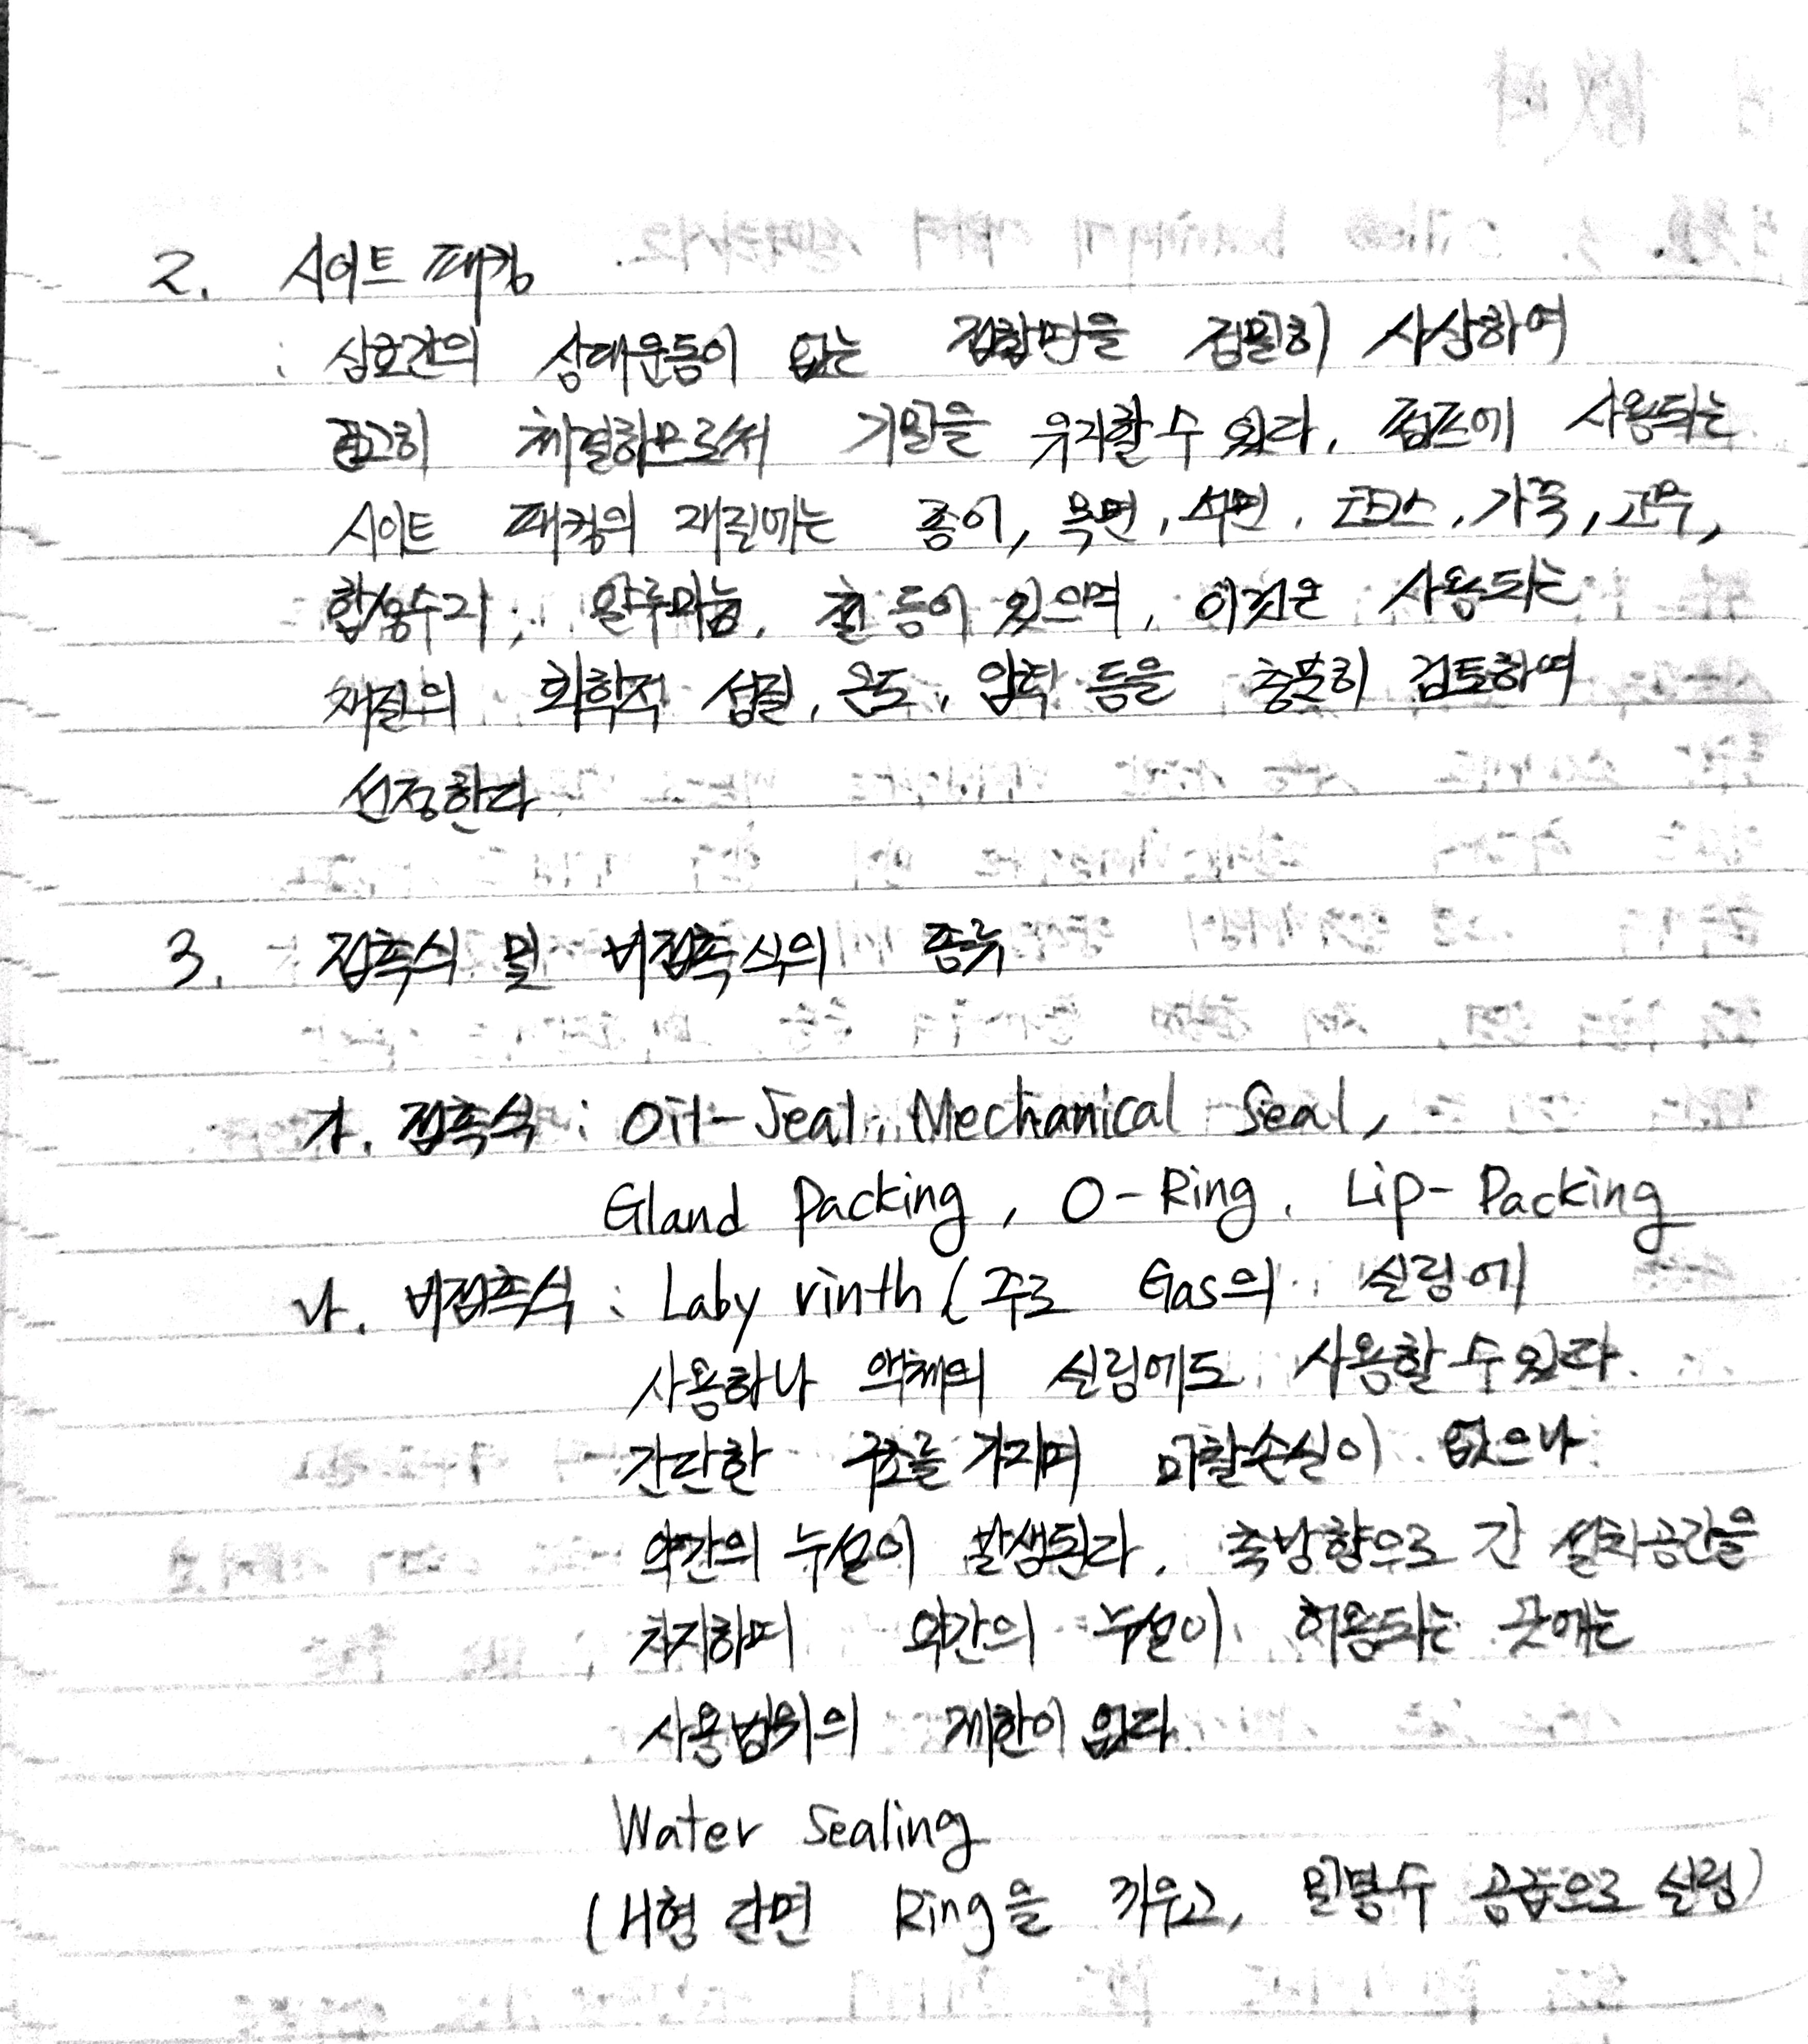 2. 시이트 패킹
: 상호간의 상대운동이 없는 접합면을 정밀히 사상하여
견고히 체결하므로써 기밀을 유지할 수 있다. 펌프에 사용되는
시이트 패킹의 재질에는 종이, 목면, 석면, 코르크스, 가죽, 고무,
합성수지, 알루미늄, 철 등이 있으며, 이것은 사용되는
재질의 화학적 성질, 온도, 압력 등을 충분히 검토하여
선정한다
3. 접촉식 및 비접촉식의 종류
가. 접촉식 : Oil-Seal, Mechanical Seal,
Gland Packing, O-Ring, Lip-Packing
나. 비접촉식 : Laby rinth (주로 Gas의 실링에
사용하나 액체의 실링에도 사용할 수 있다.
간단한 구조를 가지며 마찰손실이 없으나
약간의 누설이 발생된다. 축방향으로 긴 설치공간을
차지하며 약간의 누설이 허용되는 곳에는
사용범위의 제한이 없다.
Water Sealing
(H형 단면 Ring을 끼우고, 밀봉수 공급으로 실링)